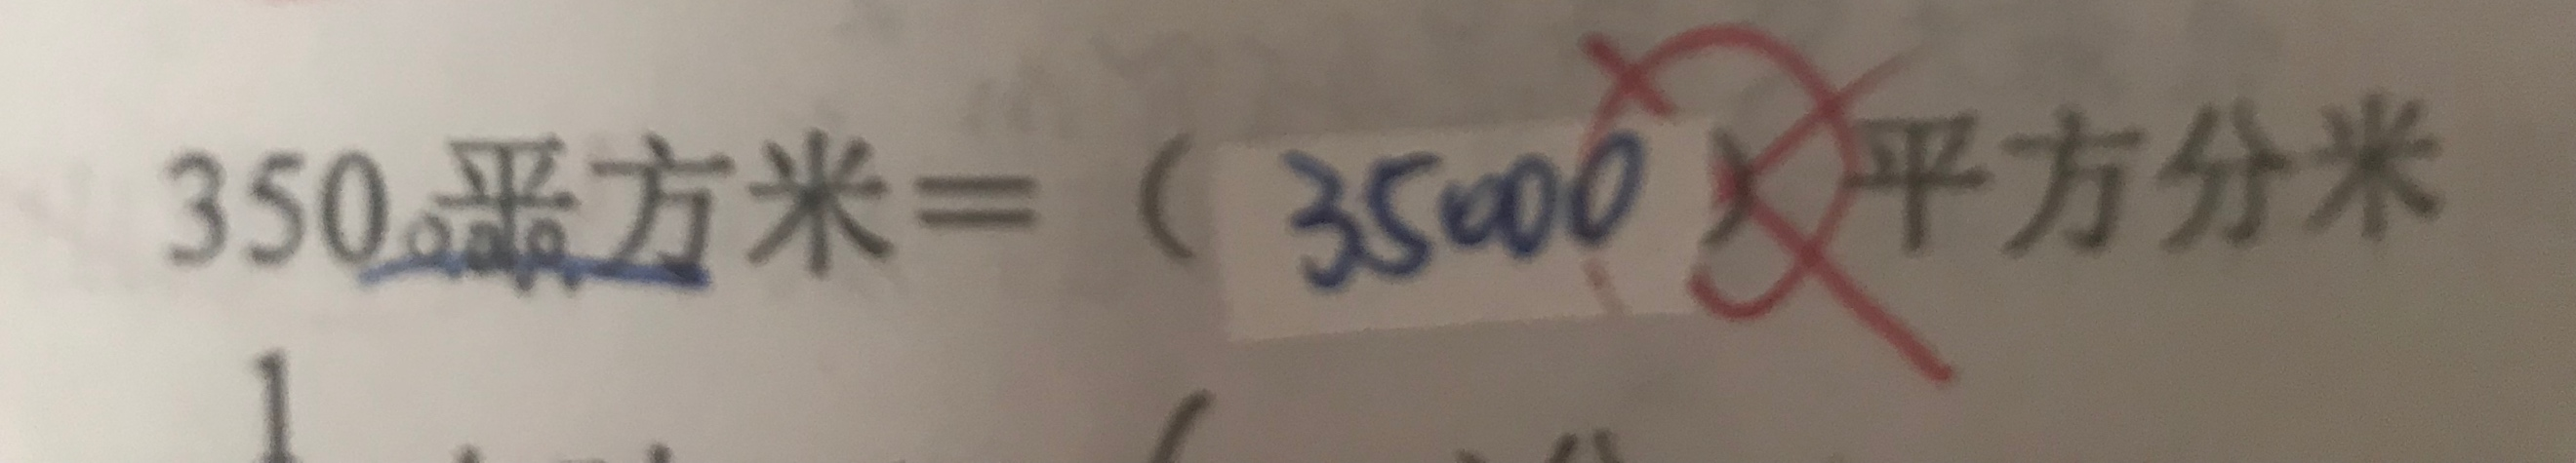 350平方米=(35000)平方分米
1
(